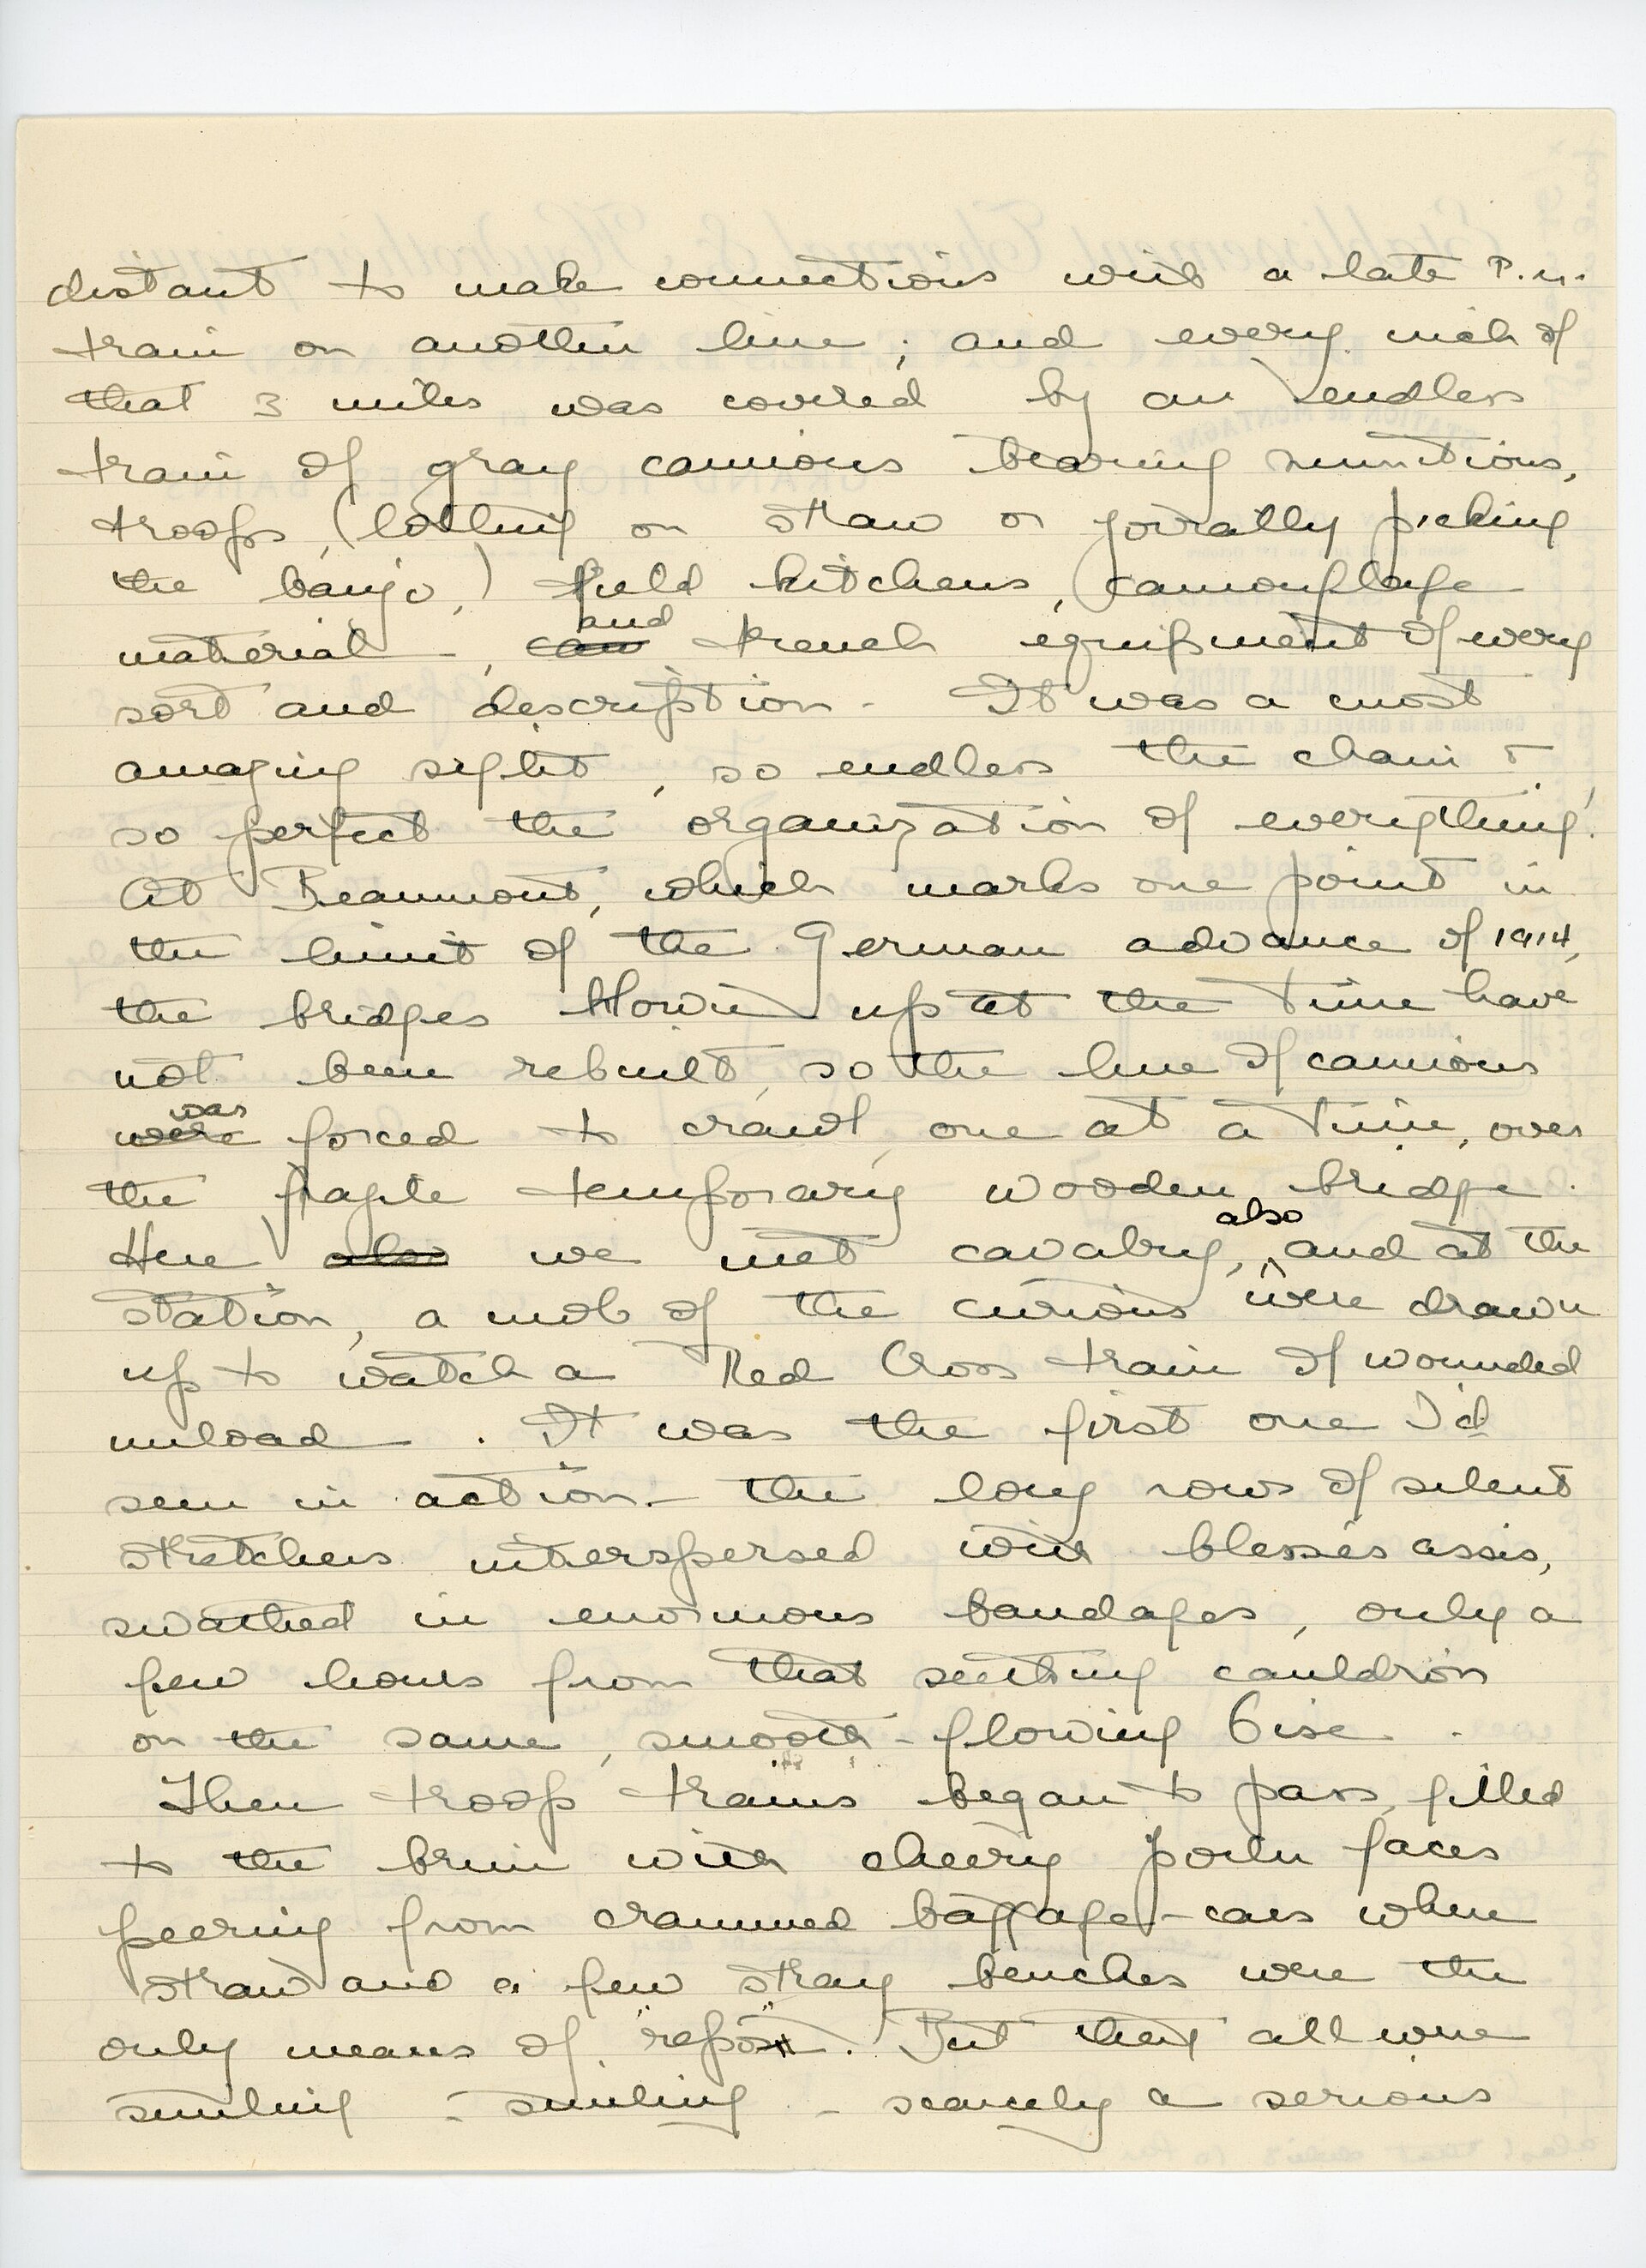 distant to make connections with a late P.M.
train on another line; and every inch of
that 3 miles was covered by an endless
train of gray camions bearing munitions,
troops, (lolling on straw or jovially picking
the banjo,) field kitchens, camouflage
material, can and trench equipment of every
sort and description. It was a most
amazing sight, so endless the chain &
so perfect the organization of everything.
At Beaumont, which marks one point in
the limit of the German advance of 1914,
the bridges blown up at the time have
not been rebuilt, so the line of camions
were was forced to crawl, one at a time, over
the fragile temporary wooden bridge.
Here also we met cavalry, also and at the
station, a mob of the curious were drawn
up to watch a Red Cross train of wounded
unload. It was the first one I'd
seen in action - the long rows of silent
stretchers interspersed with blessés assis,
swathed in enormous bandages, only a
few hours from that seething cauldron
on the same, smooth-flowing Oise.
Then troop trains began to pass, filled
to the brim with cheery poilu faces
peering from crammed baggage-cars where
straw and a few stray benches were the
only means of "repos". But they all were
smiling - smiling - scarcely a serious